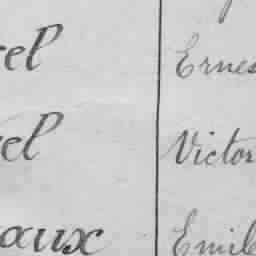 rel Ernes
rel Victor
aux Emil